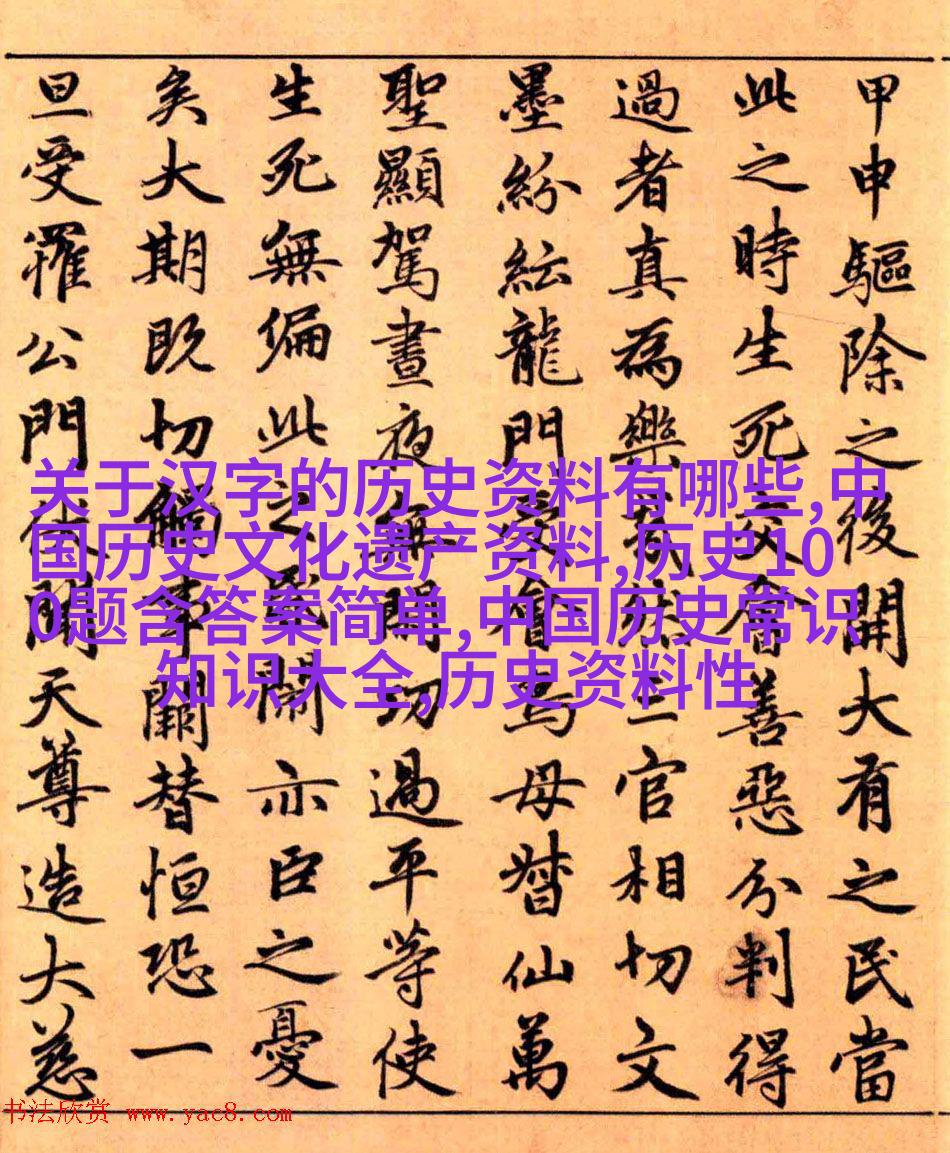 甲申驅除之後開大有之民當
此之時生死交會善惡分判得
過者真為樂三官相切文
墨紛紜龍門鳥母督仙萬
聖顯駕晝夜無閒功過平等使
生死無偏此之亦臣之憂
矣大期既切觸事闕替恒恐一
旦受罹公門伏聞天尊造大慈
关于汉字的历史资料有哪些,中
国历史文化遗产资料,历史10
0题含答案简单,中国历史常识
知识大全,历史资料性
书法欣赏 www.yac8.com